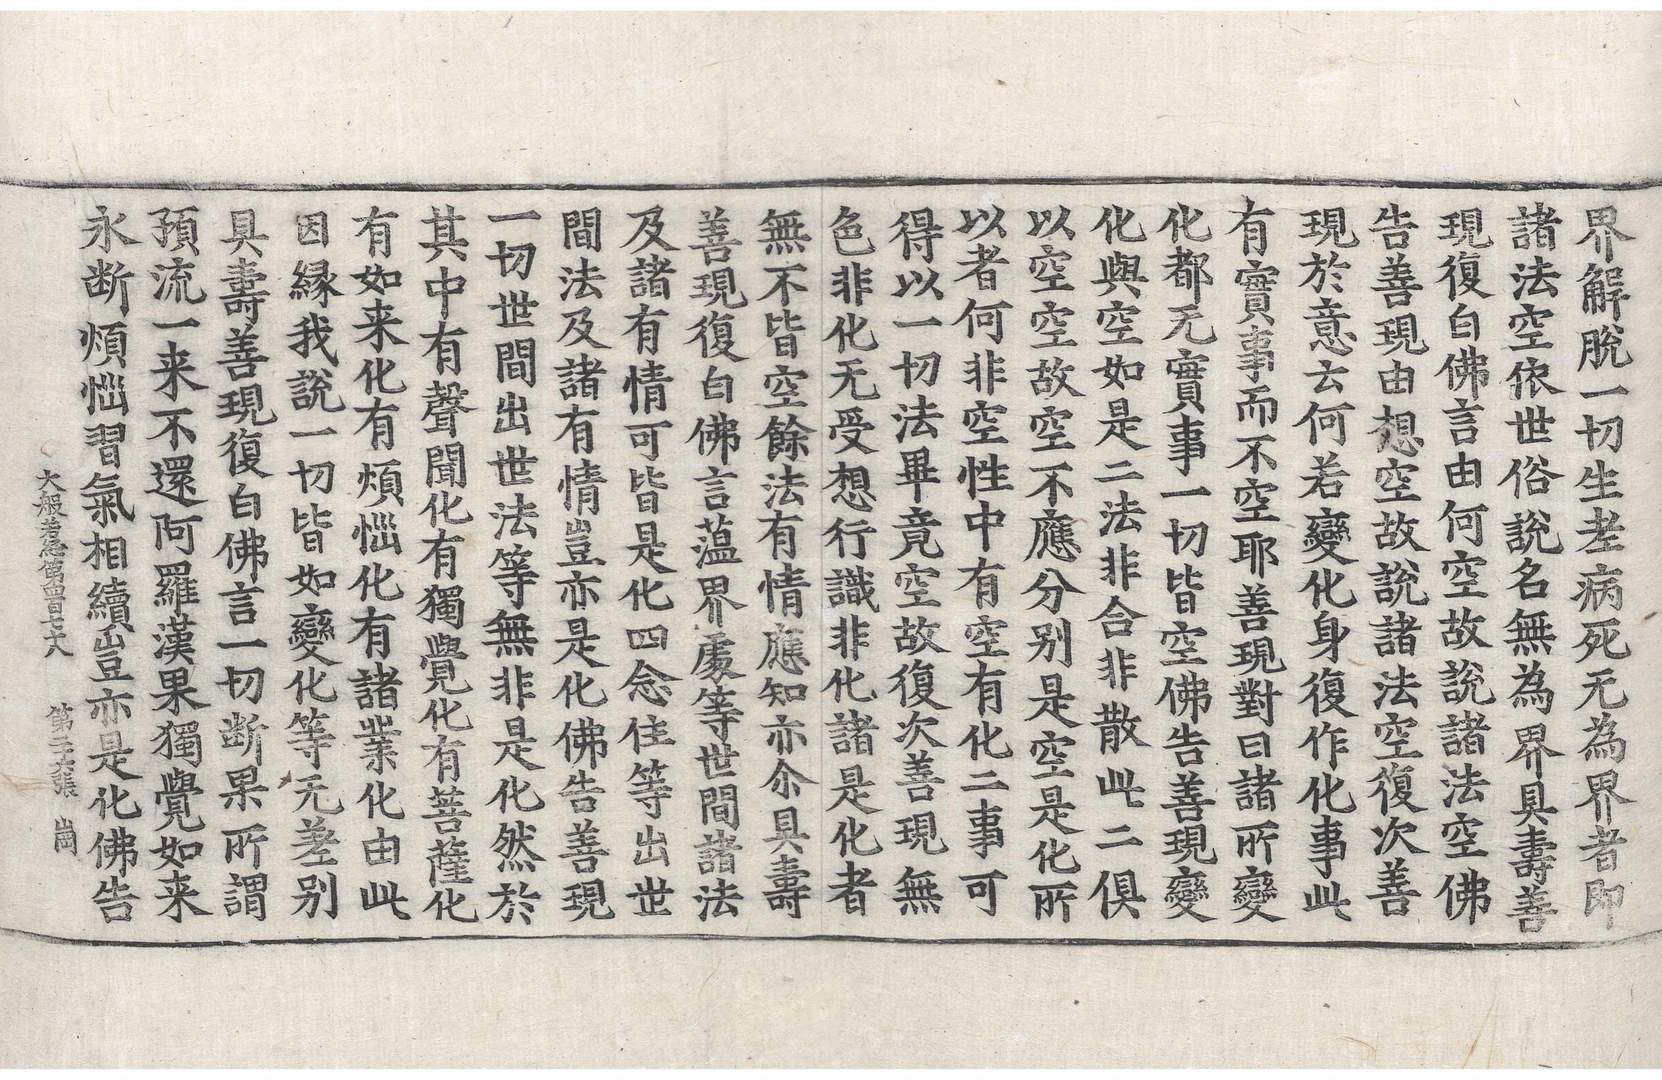 界解脫一切生老病死无為界者即
諸法空依世俗說名無為界具壽善
現復白佛言由何空故說諸法空佛
告善現由想空故說諸法空復次善
現於意云何若變化身復作化事此
有實事而不空耶善現對曰諸所變
化都无實事一切皆空佛告善現變
化與空如是二法非合非散此二俱
以空空故空不應分別是空是化所
以者何非空性中有空有化二事可
得以一切法畢竟空故復次善現無
色非化无受想行識非化諸是化者
無不皆空餘法有情應知亦尒具壽
善現復白佛言蕰界處等世間諸法
及諸有情可皆是化四念住等出世
間法及諸有情豈亦是化佛告善現
一切世間出世法等無非是化然於
其中有聲聞化有獨覺化有菩薩化
有如来化有煩惱化有諸業化由此
因緣我說一切皆如變化等无差别
具壽善現復白佛言一切断果所謂
預流一来不還阿羅漢果獨覺如来
永断煩惱習氣相續豈亦是化佛告
大般若經第四百七十八 第二六張 崗